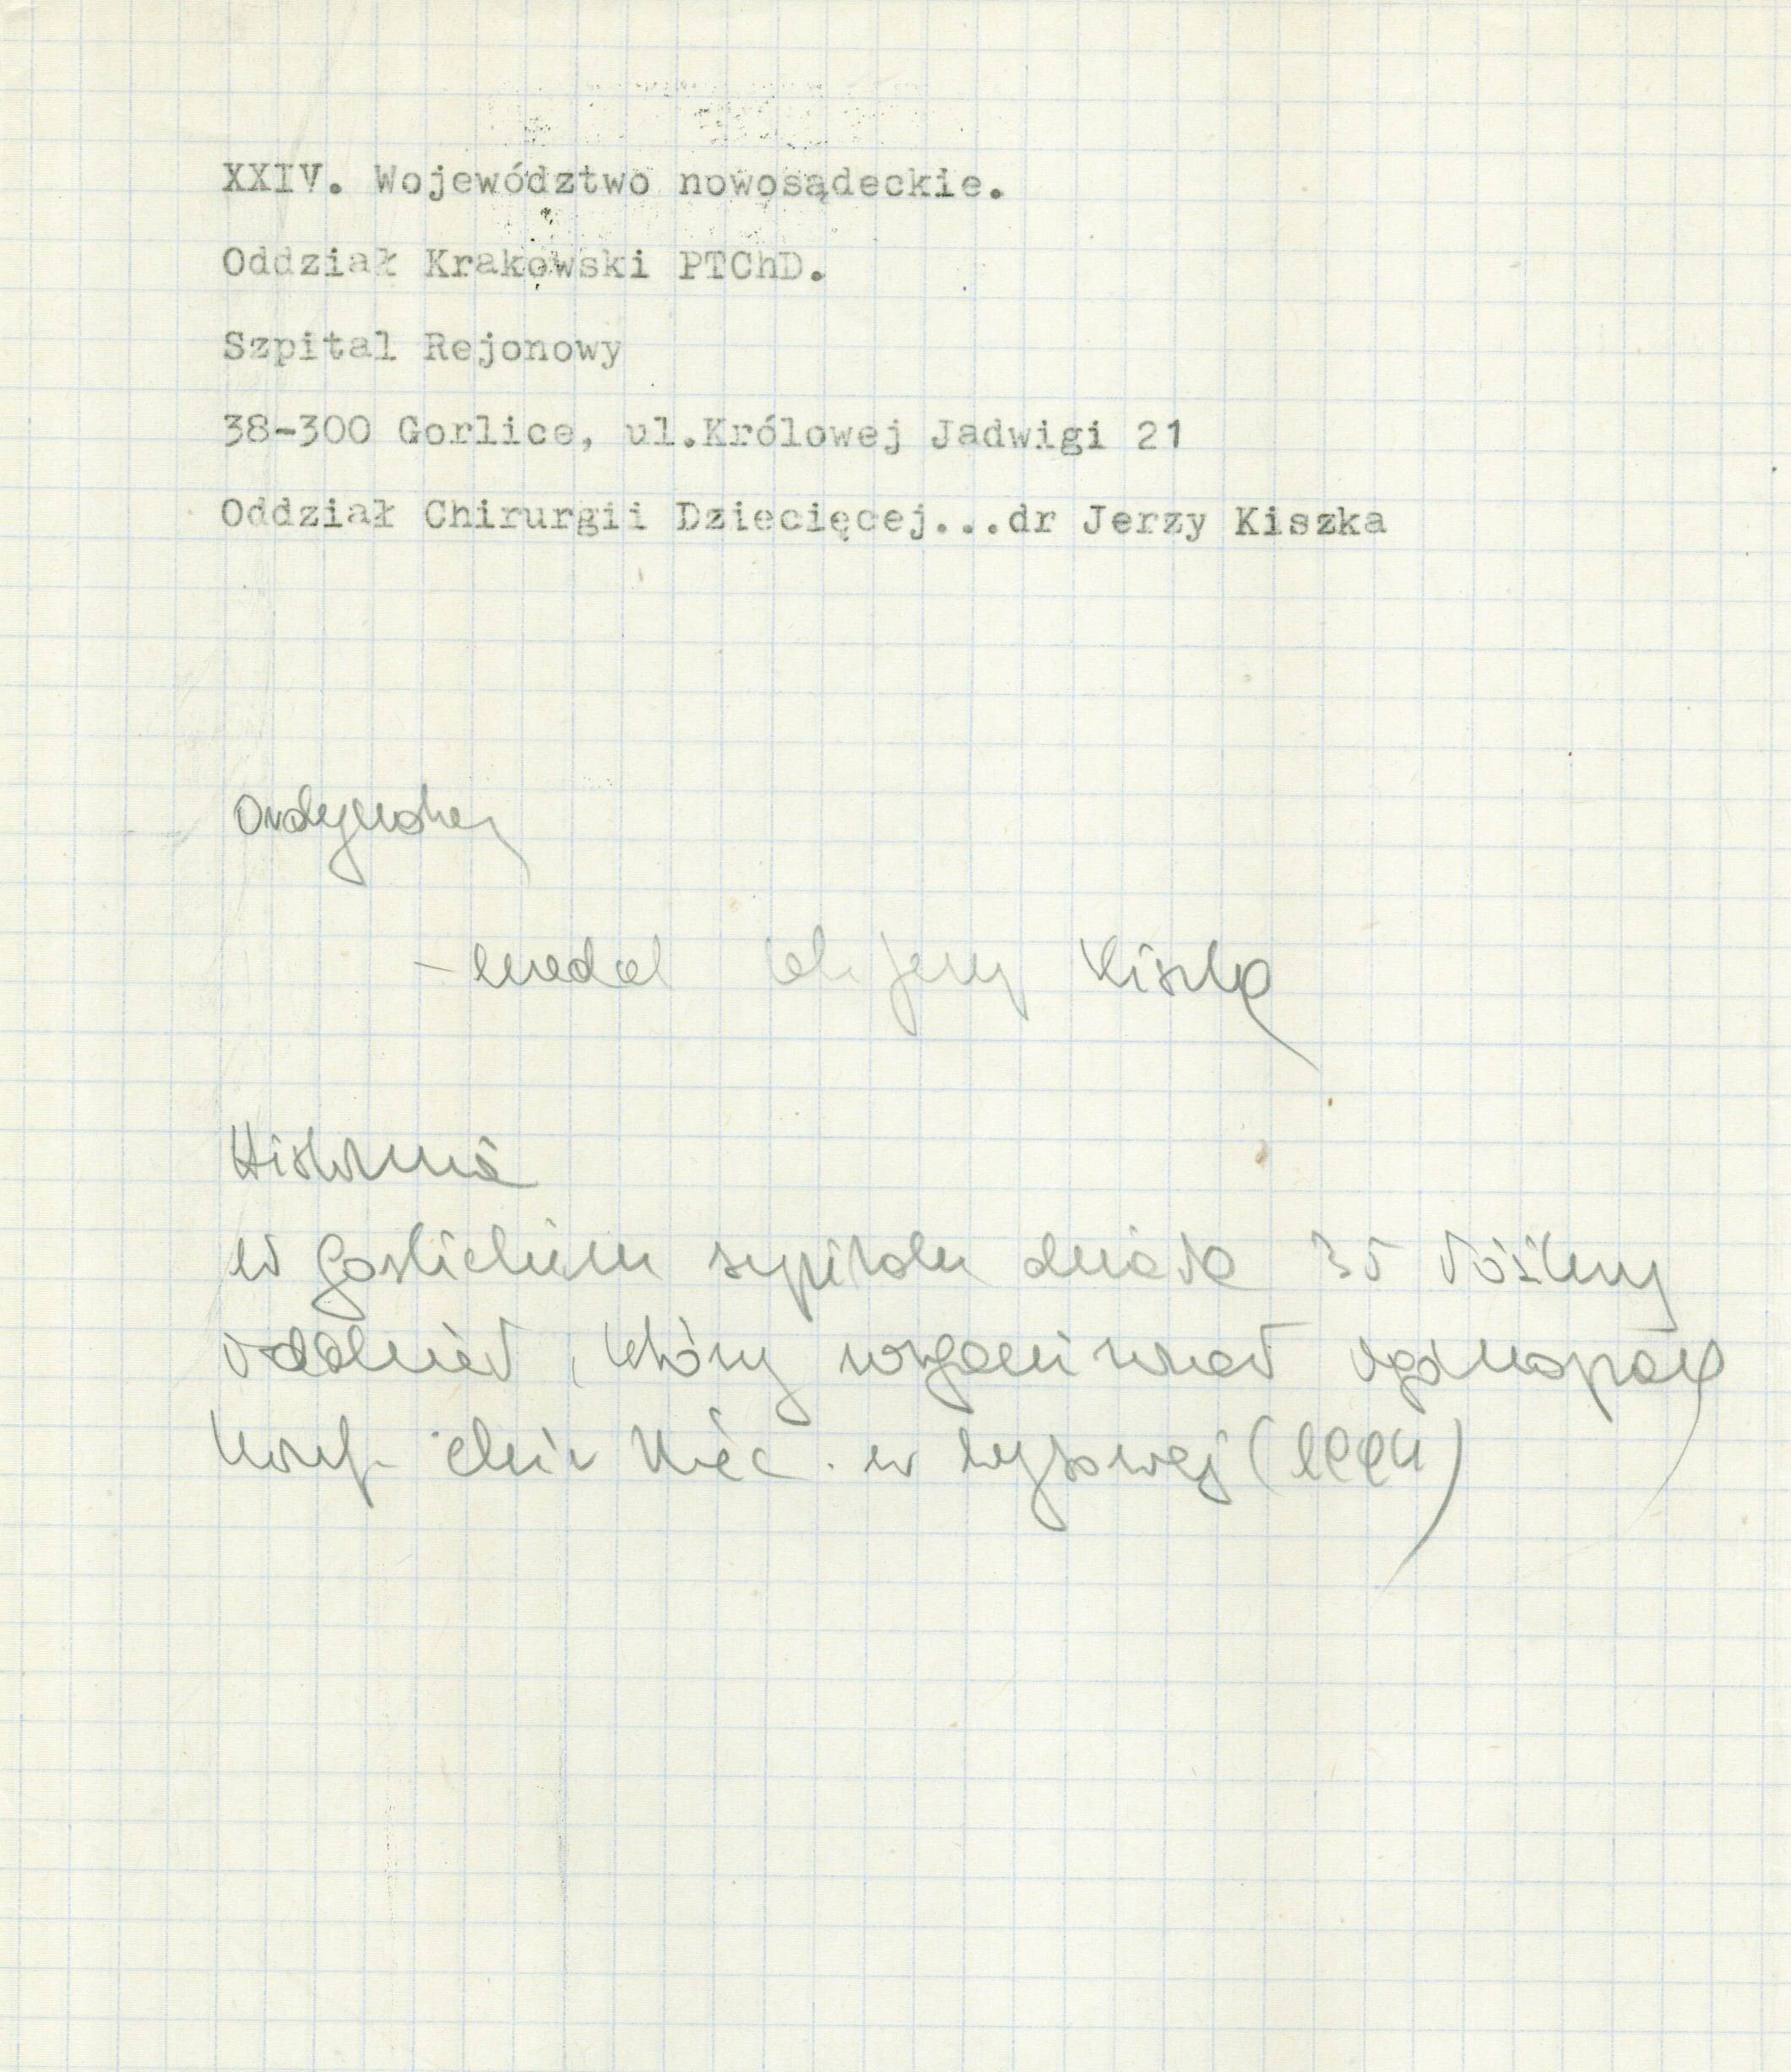 XXIV. Województwo nowosądeckie.
Oddział Krakowski PTChD.
Szpital Rejonowy
38-300 Gorlice, ul.Królowej Jadwigi 21
Oddział Chirurgii Dziecięcej...dr Jerzy Kiszka
Ordynatorzy
- medal Jerzy Kiszka
Historia
w gorlickim szpitalu działa 35 łóżkowy
oddział, który zorganizował ogólnopolską
konf. chir dziec. w Wysowej (1994)